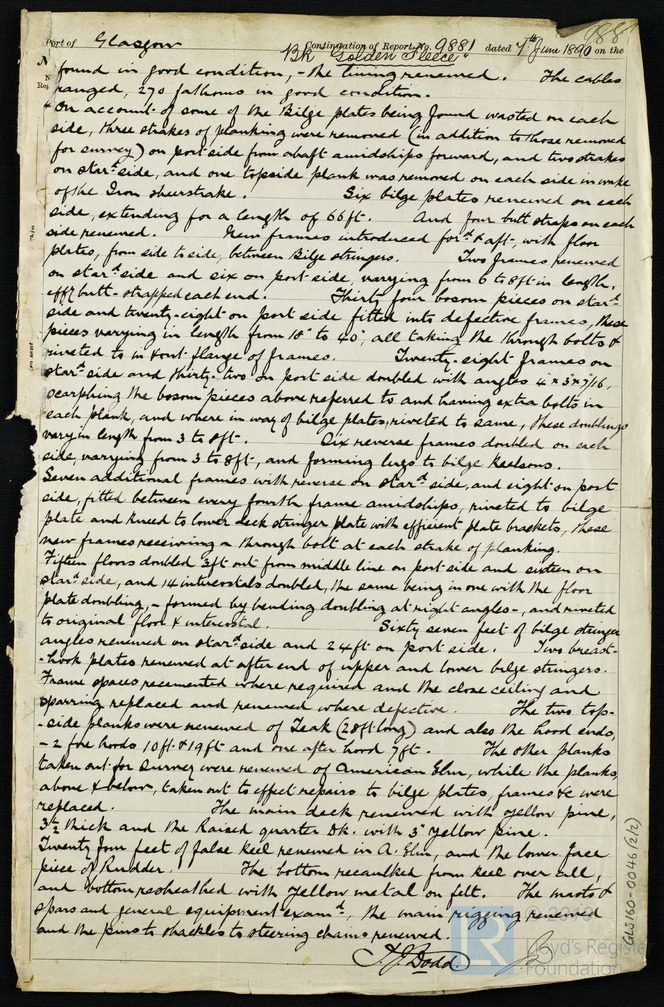 988
Port of Glasgow Continuation of Report No. 9881 dated 7th June 1890 on the
Bk "Golden Fleece"
found in good condition, - the lining renewed. The cables
ranged, 270 fathoms in good condition.
On account of some of the Bilge plates being found wasted on each
side, three strakes of planking were removed (in addition to those removed
for survey) on port side from abaft amidships forward, and two strakes
on stard side, and one topside plank was removed on each side in wake
of the Iron sheerstrake. Six bilge plates renewed on each
side, extending for a length of 66 ft. And four butt straps on each
side renewed. New frames introduced ford & aft, with floor
plates, from side to side, between Bilge stringers. Two frames renewed
on stard side and six on port side, varying from 6 to 8 ft in length,
effy butt-strapped each end. Thirty four bosom pieces on stard
side and twenty-eight on port side fitted into defective frames, these
pieces varying in length from 18" to 40", all taking the through bolts &
riveted to in & out flange of frames. Twenty-eight frames on
stard side and thirty-two on port side doubled with angles 4" x 3" x 7/16,
scarphing the bosom pieces above referred to and having extra bolts in
each plank, and where in way of bilge plates, riveted to same, these doublings
vary in length from 3 to 8 ft. Six reverse frames doubled on each
side, varying from 3 to 8 ft, and forming lugs to bilge keelsons.
Seven additional frames with reverse on stard side, and eight on port
side, fitted between every fourth frame amidships, riveted to bilge
plate and kneed to lower deck stringer plate with efficient plate brackets, these
new frames receiving a through bolt at each strake of planking.
Fifteen floors doubled 3 ft out from middle line on port side and sixteen on
stard side, and 14 intercostals doubled, the same being in one with the floor
plate doubling, - formed by bending doubling at right angles -, and riveted
to original floor & intercostal. Sixty seven feet of bilge stringer
angles renewed on stard side and 24 ft on port side. Two breast-
-hook plates renewed at after end of upper and lower bilge stringers.
Frame spaces recemented where required and the close ceiling and
sparring replaced and renewed where defective. The two top-
-side planks were renewed of Teak (28 ft long) and also the hood ends,
- 2 fore hoods 10 ft & 19 ft and one after hood 7 ft. The other planks
taken out for survey were renewed of American Elm, while the planks,
above & below, taken out to effect repairs to bilge plates, frames &c were
replaced. The main deck renewed with yellow pine,
3½ thick and the Raised quarter Dk. with 3" yellow pine.
Twenty four feet of false keel renewed in A. Elm, and the lower face
piece of Rudder. The bottom recaulked from keel over all,
and bottom resheathed with yellow metal on felt. The masts &
spars and general equipment examd, the main rigging renewed
and the pins to shackles to steering chains renewed.
A. J. Dodd
GLS160-0046 (2/2)
LR
Lloyd's Register
Foundation